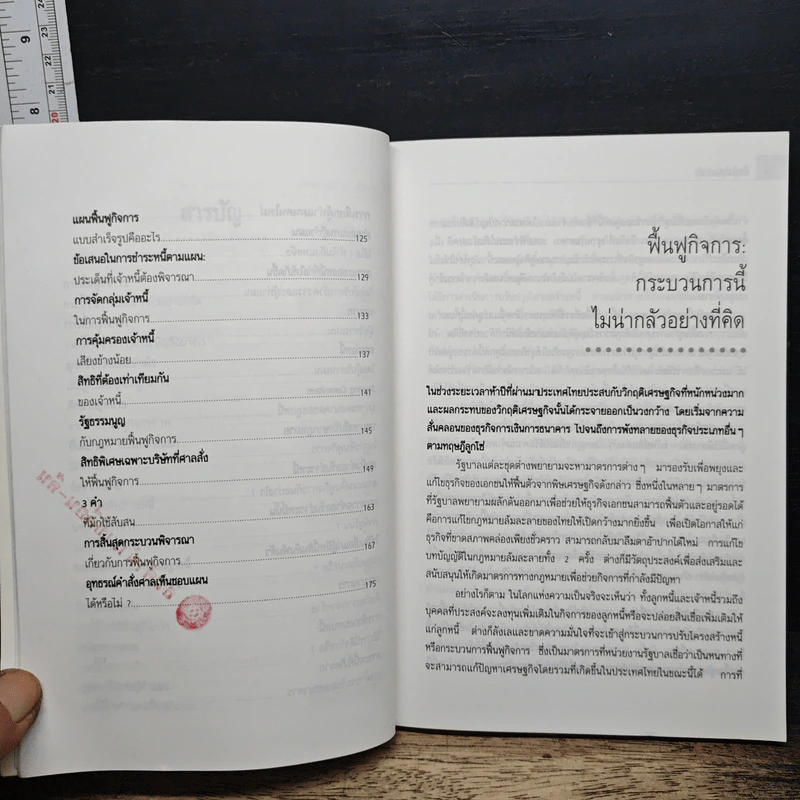 9
8
24
23
22
21
20
แผนฟื้นฟูกิจการ
แบบสำเร็จรูปคืออะไร...125
ข้อเสนอในการชำระหนี้ตามแผน:
ประเด็นที่เจ้าหนี้ต้องพิจารณา...129
การจัดกลุ่มเจ้าหนี้
ในการฟื้นฟูกิจการ...133
การคุ้มครองเจ้าหนี้
เสียงข้างน้อย...137
สิทธิที่ต้องเท่าเทียมกัน
ของเจ้าหนี้...141
รัฐธรรมนูญ
กับกฎหมายฟื้นฟูกิจการ...145
สิทธิพิเศษเฉพาะบริษัทที่ศาลสั่ง
ให้ฟื้นฟูกิจการ...149
3 คำ
ที่มักใช้สับสน...163
การสิ้นสุดกระบวนพิจารณา
เกี่ยวกับการฟื้นฟูกิจการ...167
อุทธรณ์คำสั่งศาลเห็นชอบแผน
ได้หรือไม่ ?...175
ฟื้นฟูกิจการ:
กระบวนการนี้
ไม่น่ากลัวอย่างที่คิด
ในช่วงระยะเวลาห้าปีที่ผ่านมาประเทศไทยประสบกับวิกฤติเศรษฐกิจที่หนักหน่วงมาก
และผลกระทบของวิกฤติเศรษฐกิจนั้นได้กระจายออกเป็นวงกว้าง โดยเริ่มจากความ
สั่นคลอนของธุรกิจการเงินการธนาคาร ไปจนถึงการพังทลายของธุรกิจประเภทอื่น ๆ
ตามทฤษฎีลูกโซ่
รัฐบาลแต่ละชุดต่างพยายามจะหามาตรการต่าง ๆ มารองรับเพื่อพยุงและ
แก้ไขธุรกิจของเอกชนให้ฟื้นตัวจากพิษเศรษฐกิจดังกล่าว ซึ่งหนึ่งในหลาย ๆ มาตรการ
ที่รัฐบาลพยายามผลักดันออกมาเพื่อช่วยให้ธุรกิจเอกชนสามารถฟื้นตัวและอยู่รอดได้
คือการแก้ไขกฎหมายล้มละลายของไทยให้เปิดกว้างมากยิ่งขึ้น เพื่อเปิดโอกาสให้แก่
ธุรกิจที่ขาดสภาพคล่องเพียงชั่วคราว สามารถกลับมาลืมตาอ้าปากได้ใหม่ การแก้ไข
บทบัญญัติในกฎหมายล้มละลายทั้ง 2 ครั้ง ต่างก็มีวัตถุประสงค์เพื่อส่งเสริมและ
สนับสนุนให้เกิดมาตรการทางกฎหมายเพื่อช่วยกิจการที่กำลังมีปัญหา
อย่างไรก็ตาม ในโลกแห่งความเป็นจริงจะเห็นว่า ทั้งลูกหนี้และเจ้าหนี้รวมถึง
บุคคลที่ประสงค์จะลงทุนเพิ่มเติมในกิจการของลูกหนี้หรือจะปล่อยสินเชื่อเพิ่มเติมให้
แก่ลูกหนี้ ต่างก็ลังเลและขาดความมั่นใจที่จะเข้าสู่กระบวนการปรับโครงสร้างหนี้
หรือกระบวนการฟื้นฟูกิจการ ซึ่งเป็นมาตรการที่หน่วยงานรัฐบาลเชื่อว่าเป็นหนทางที่
จะสามารถแก้ปัญหาเศรษฐกิจโดยรวมที่เกิดขึ้นในประเทศไทยในขณะนี้ได้ การที่